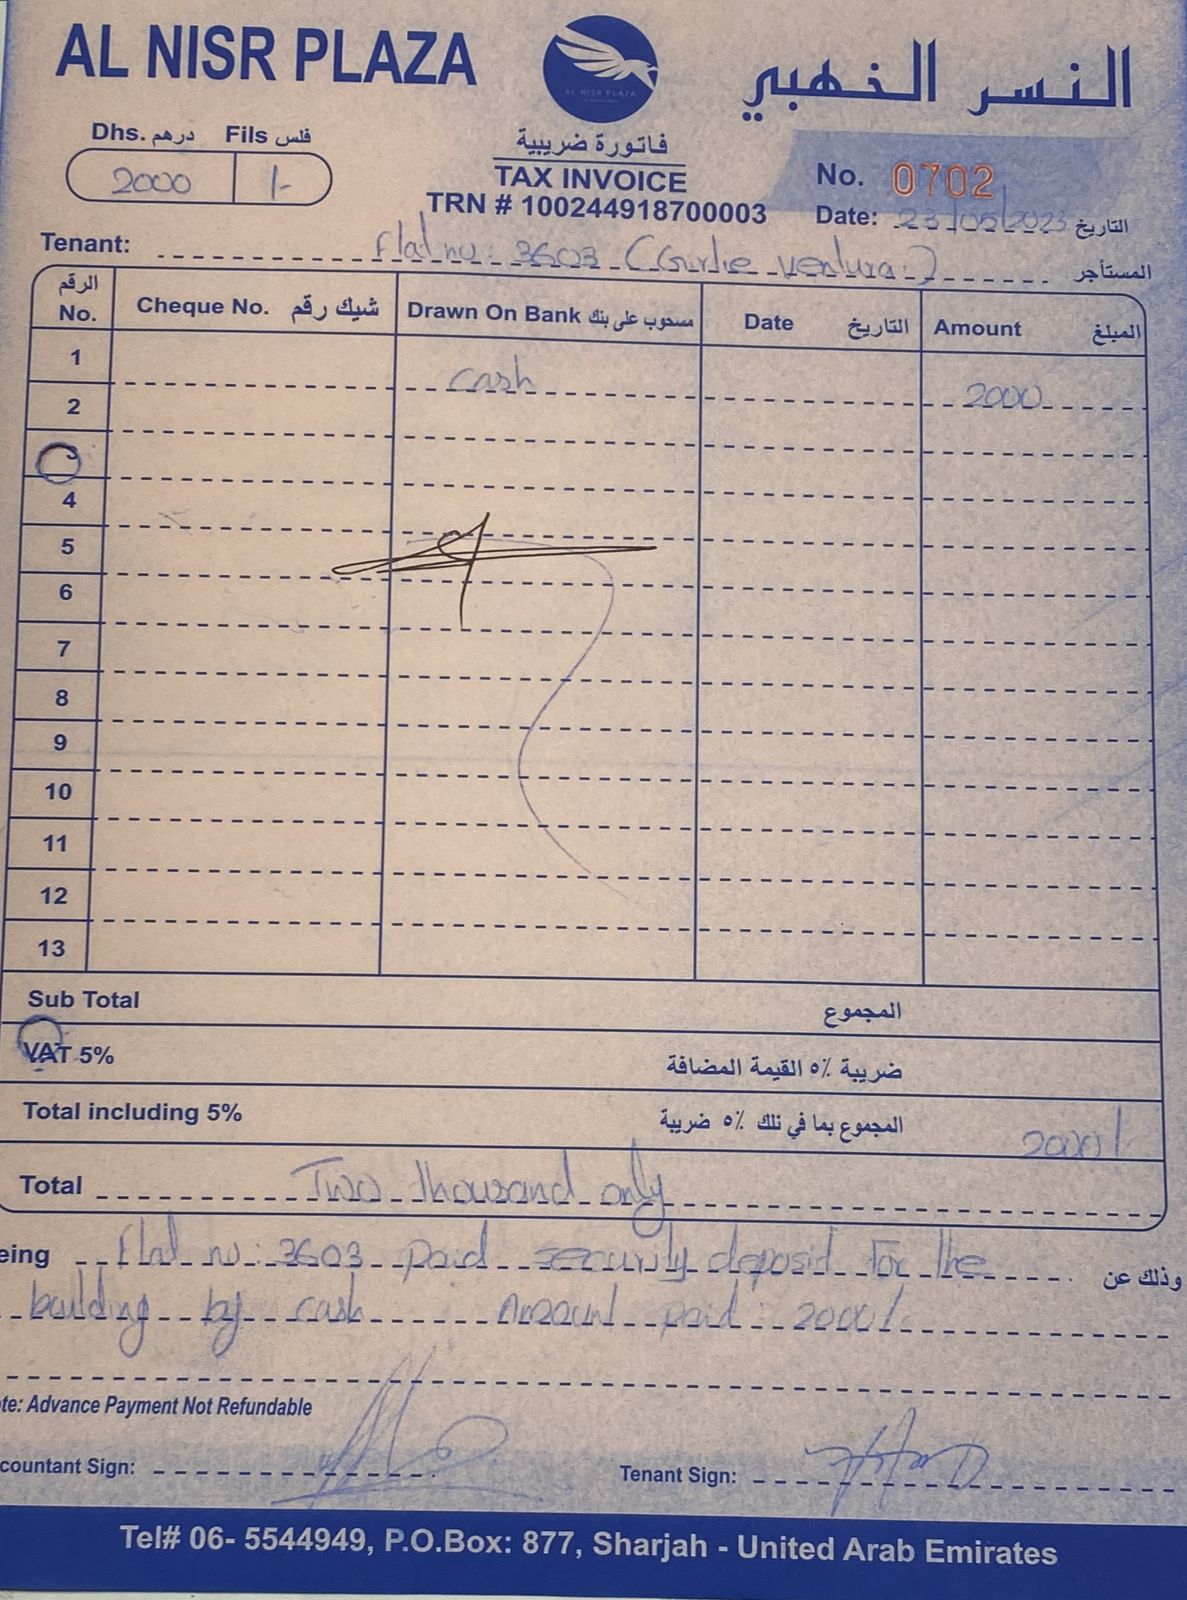 AL NISR PLAZA
النسر الذهبي
AL NISR PLAZA
Dhs. درهم Fils فلس
2000 /-
فاتورة ضريبية
TAX INVOICE
TRN # 100244918700003
No. 0702
Date: 23/05/2023 التاريخ
Tenant: Flat no: 3603 (Girlie ventura) المستأجر
الرقم No. Cheque No. شيك رقم Drawn On Bank مسحوب على بنك Date التاريخ Amount المبلغ
1 cash 2000
2
4
5
6
7
8
9
10
11
12
13
Sub Total المجموع
VAT 5% ضريبة ٥٪ القيمة المضافة
Total including 5% المجموع بما في نلك ٥٪ ضريبة 2000/
Total Two thousand only
eing Flat no: 3603 paid security deposit for the وذلك عن
building by cash Amount paid: 2000/.
te: Advance Payment Not Refundable
countant Sign: Tenant Sign:
Tel# 06- 5544949, P.O.Box: 877, Sharjah - United Arab Emirates